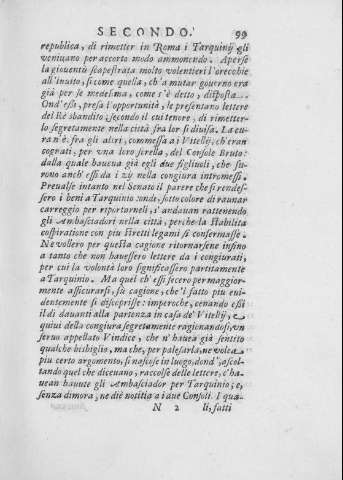 SECONDO. 99
republica, di rimetter in Roma i Tarquinij gli
veniuano per accorto modo ammonendo. Aperse
la giouentù scapestrata molto volentieri l'orecchie
all'inuito, sì come quella, ch'a mutar gouerno era
già per se medesima, come s'è detto, disposta.
Ond'essi, presa l'opportunità, le presentano lettere
del Rè sbandito, secondo il cui tenore, di rimetter-
lo segretamente nella città fra lor si diuisa. La cu-
ra n'è, fra gli altri, commessa a i Vitellij, ch'eran
cognati, per vna loro sorella, del Console Bruto:
dalla quale haueua già egli due figliuoli, che fu-
rono anch'essi da i zij nella congiura intromessi.
Preualse intanto nel Senato il parere che si rendes-
sero i beni a Tarquinio: onde, sotto colore di raunar
carreggio per riportarneli, s'andauan rattenendo
gli Ambasciadori nella città, perche la stabilita
cospiratione con piu stretti legami si confermasse.
Ne vollero per questa cagione ritornarsene infino
a tanto che non hauessero lettere da i congiurati,
per cui la volontà loro significassero partitamente
a Tarquinio. Ma quel ch'essi fecero per maggior-
mente assicurarsi, fù cagione, che'l fatto più eui-
dentemente si discoprisse: imperoche, cenando essi
il dì dauanti alla partenza in casa de' Vitellij, e
quiui della congiura segretamente ragionandosi, vn
seruo appellato Vindice, che n'haueua già sentito
qualche bisbiglio, ma che, per palesarla, ne volea
più certo argomento, si nascose in luogo, dond', ascol-
tando quel che diceuano, raccolse delle lettere, c'ha-
uean hauute gli Ambasciador per Tarquinio; e,
senza dimora, ne diè notitia a i due Consoli. I qua-
N 2 li, fatti